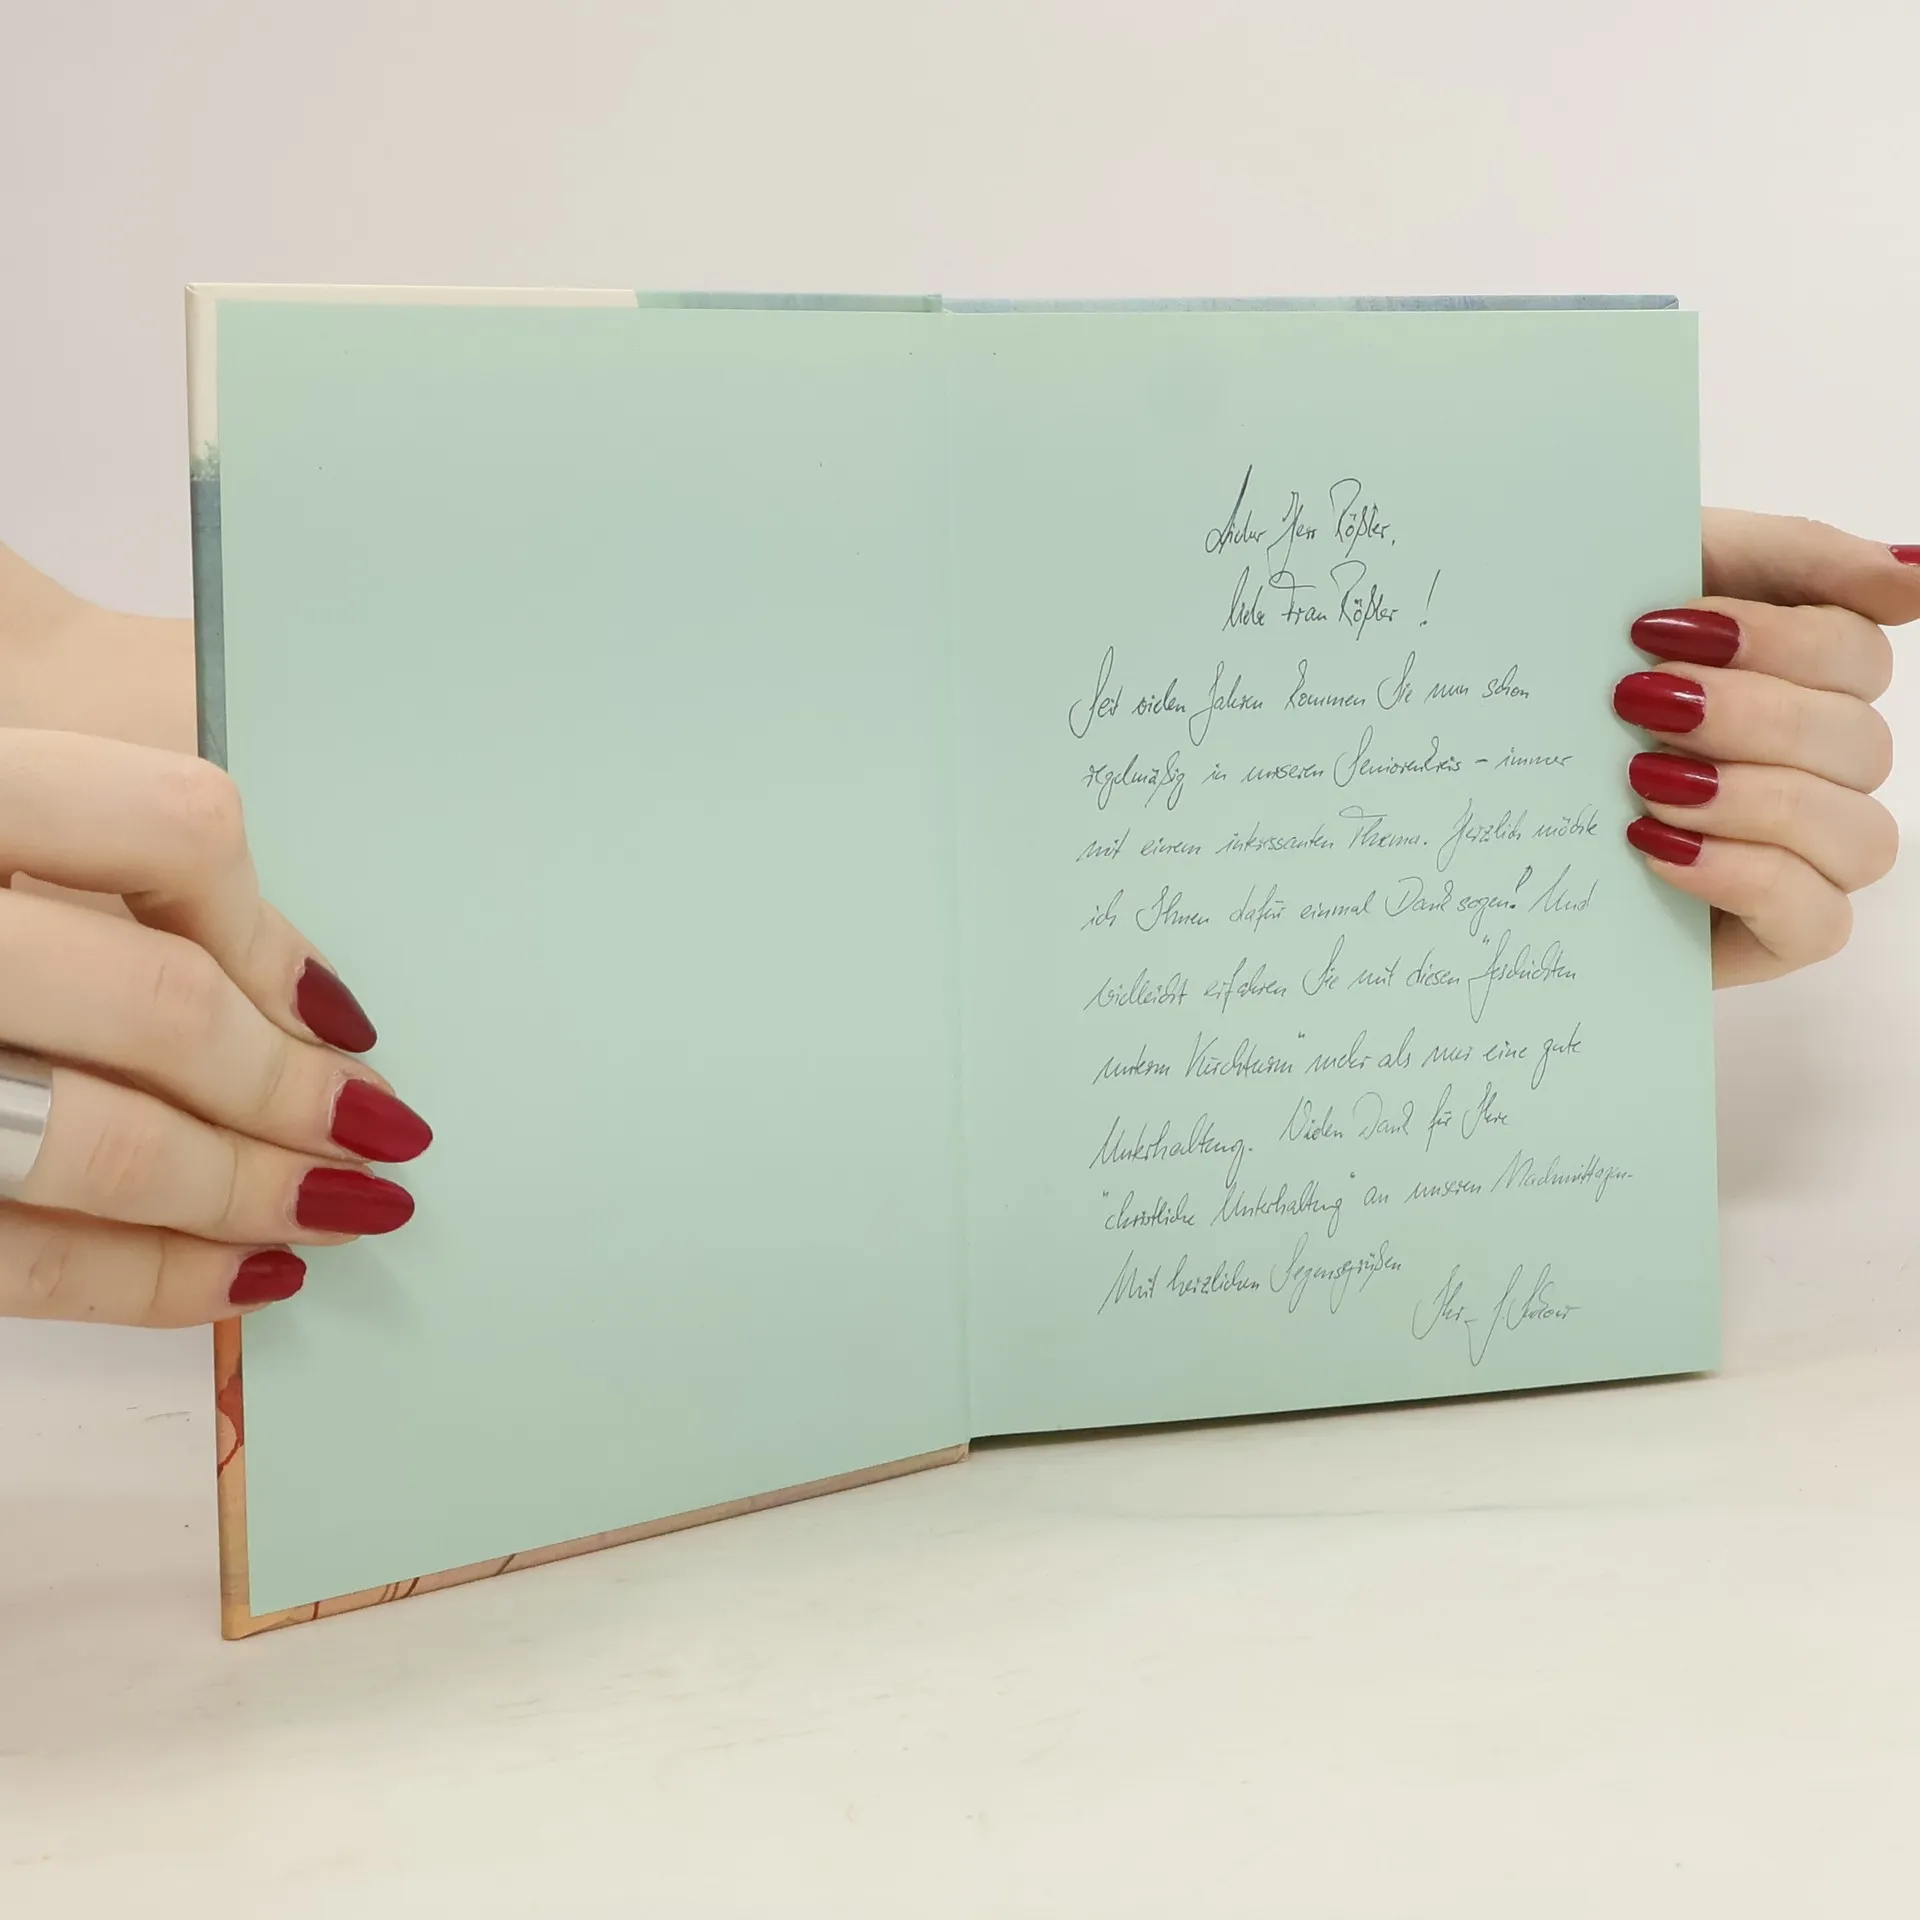 Lieber Herr Rößler,
liebe Frau Rößler!
Seit vielen Jahren kommen Sie nun schon
regelmäßig in unseren Seniorenkreis – immer
mit einem interessanten Thema. Herzlich möchte
ich Ihnen dafür einmal Dank sagen! Und
vielleicht erfahren Sie mit diesen "Geschichten
unterm Kirchturm" mehr als nur eine gute
Unterhaltung. Vielen Dank für Ihre
"christliche Unterhaltung" an unseren Nachmittagen.
Mit herzlichen Segensgrüßen
Ihr